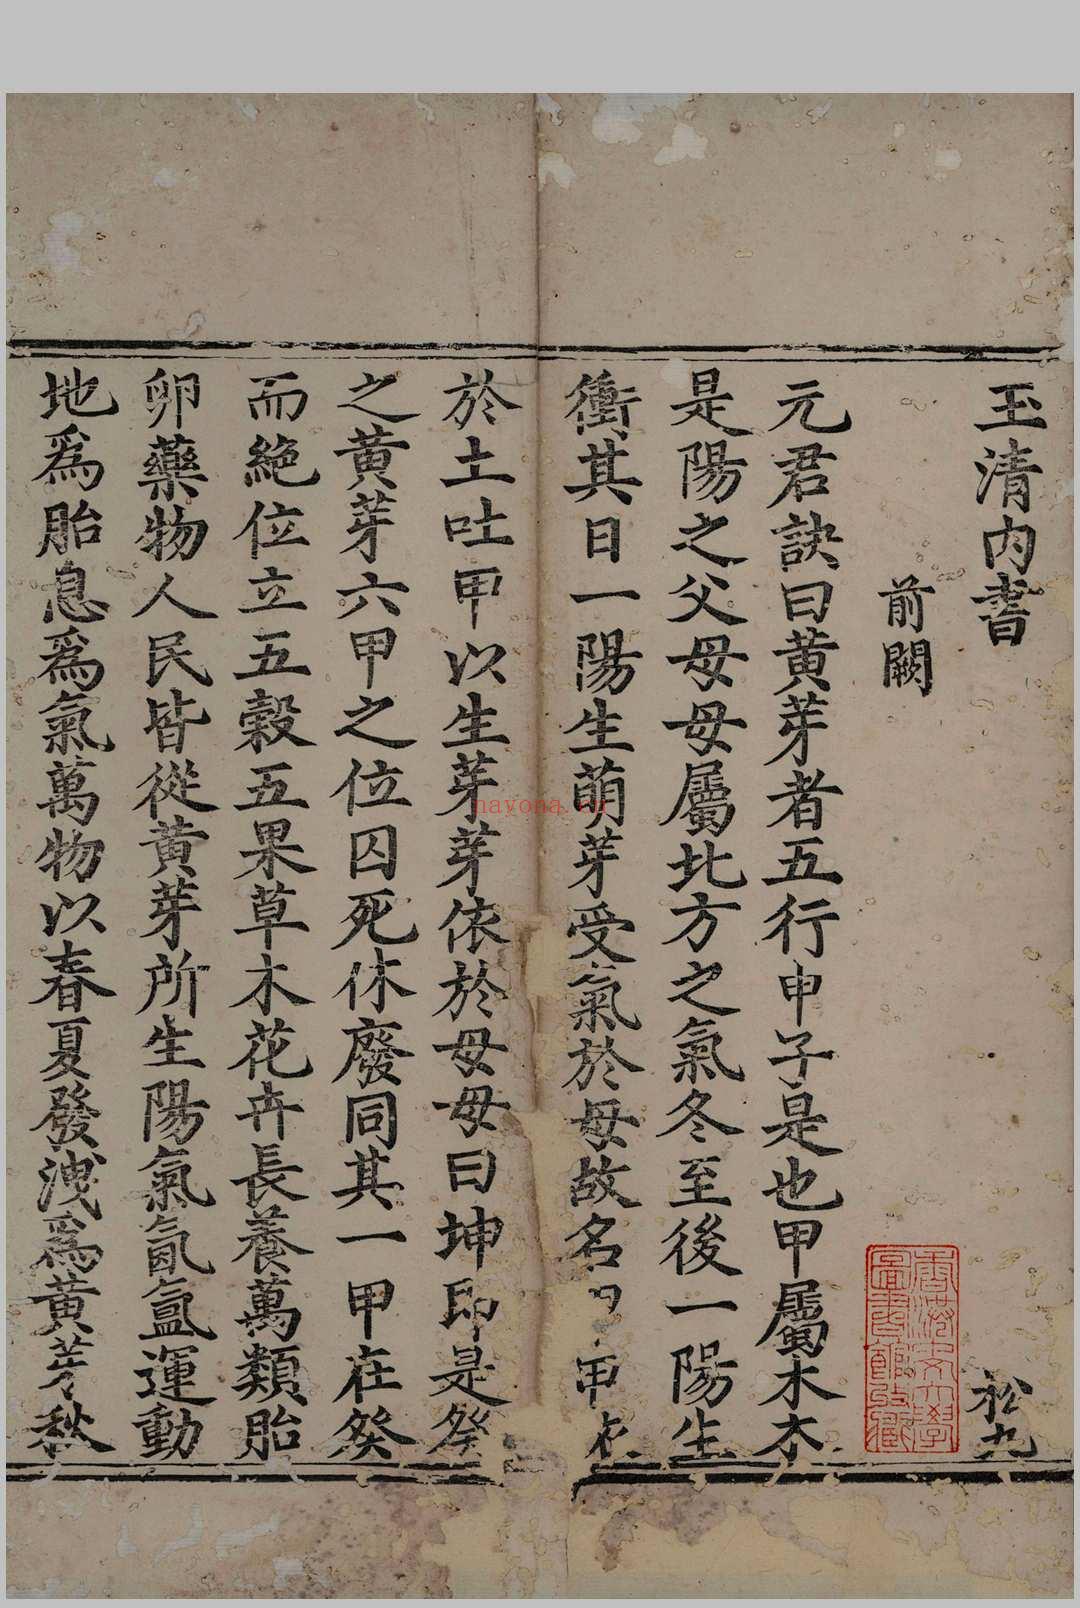 玉清内書
松九
前闕
元君訣曰黄芽者五行甲子是也甲屬木木
是陽之父母母屬北方之氣冬至後一陽生
衝其日一陽生萌芽受氣於母故名曰甲
於土吐甲以生芽芽依於母母曰坤即是癸
之黄芽六甲之位囚死休廢同其一甲在癸
而絶位立五穀五果草木花卉長養萬類胎
卵藥物人民皆從黄芽所生陽氣氤氳運動
地爲胎息爲氣萬物以春夏發洩爲黄芽秋
香港中文大學
圖書館所藏
nayona.cn